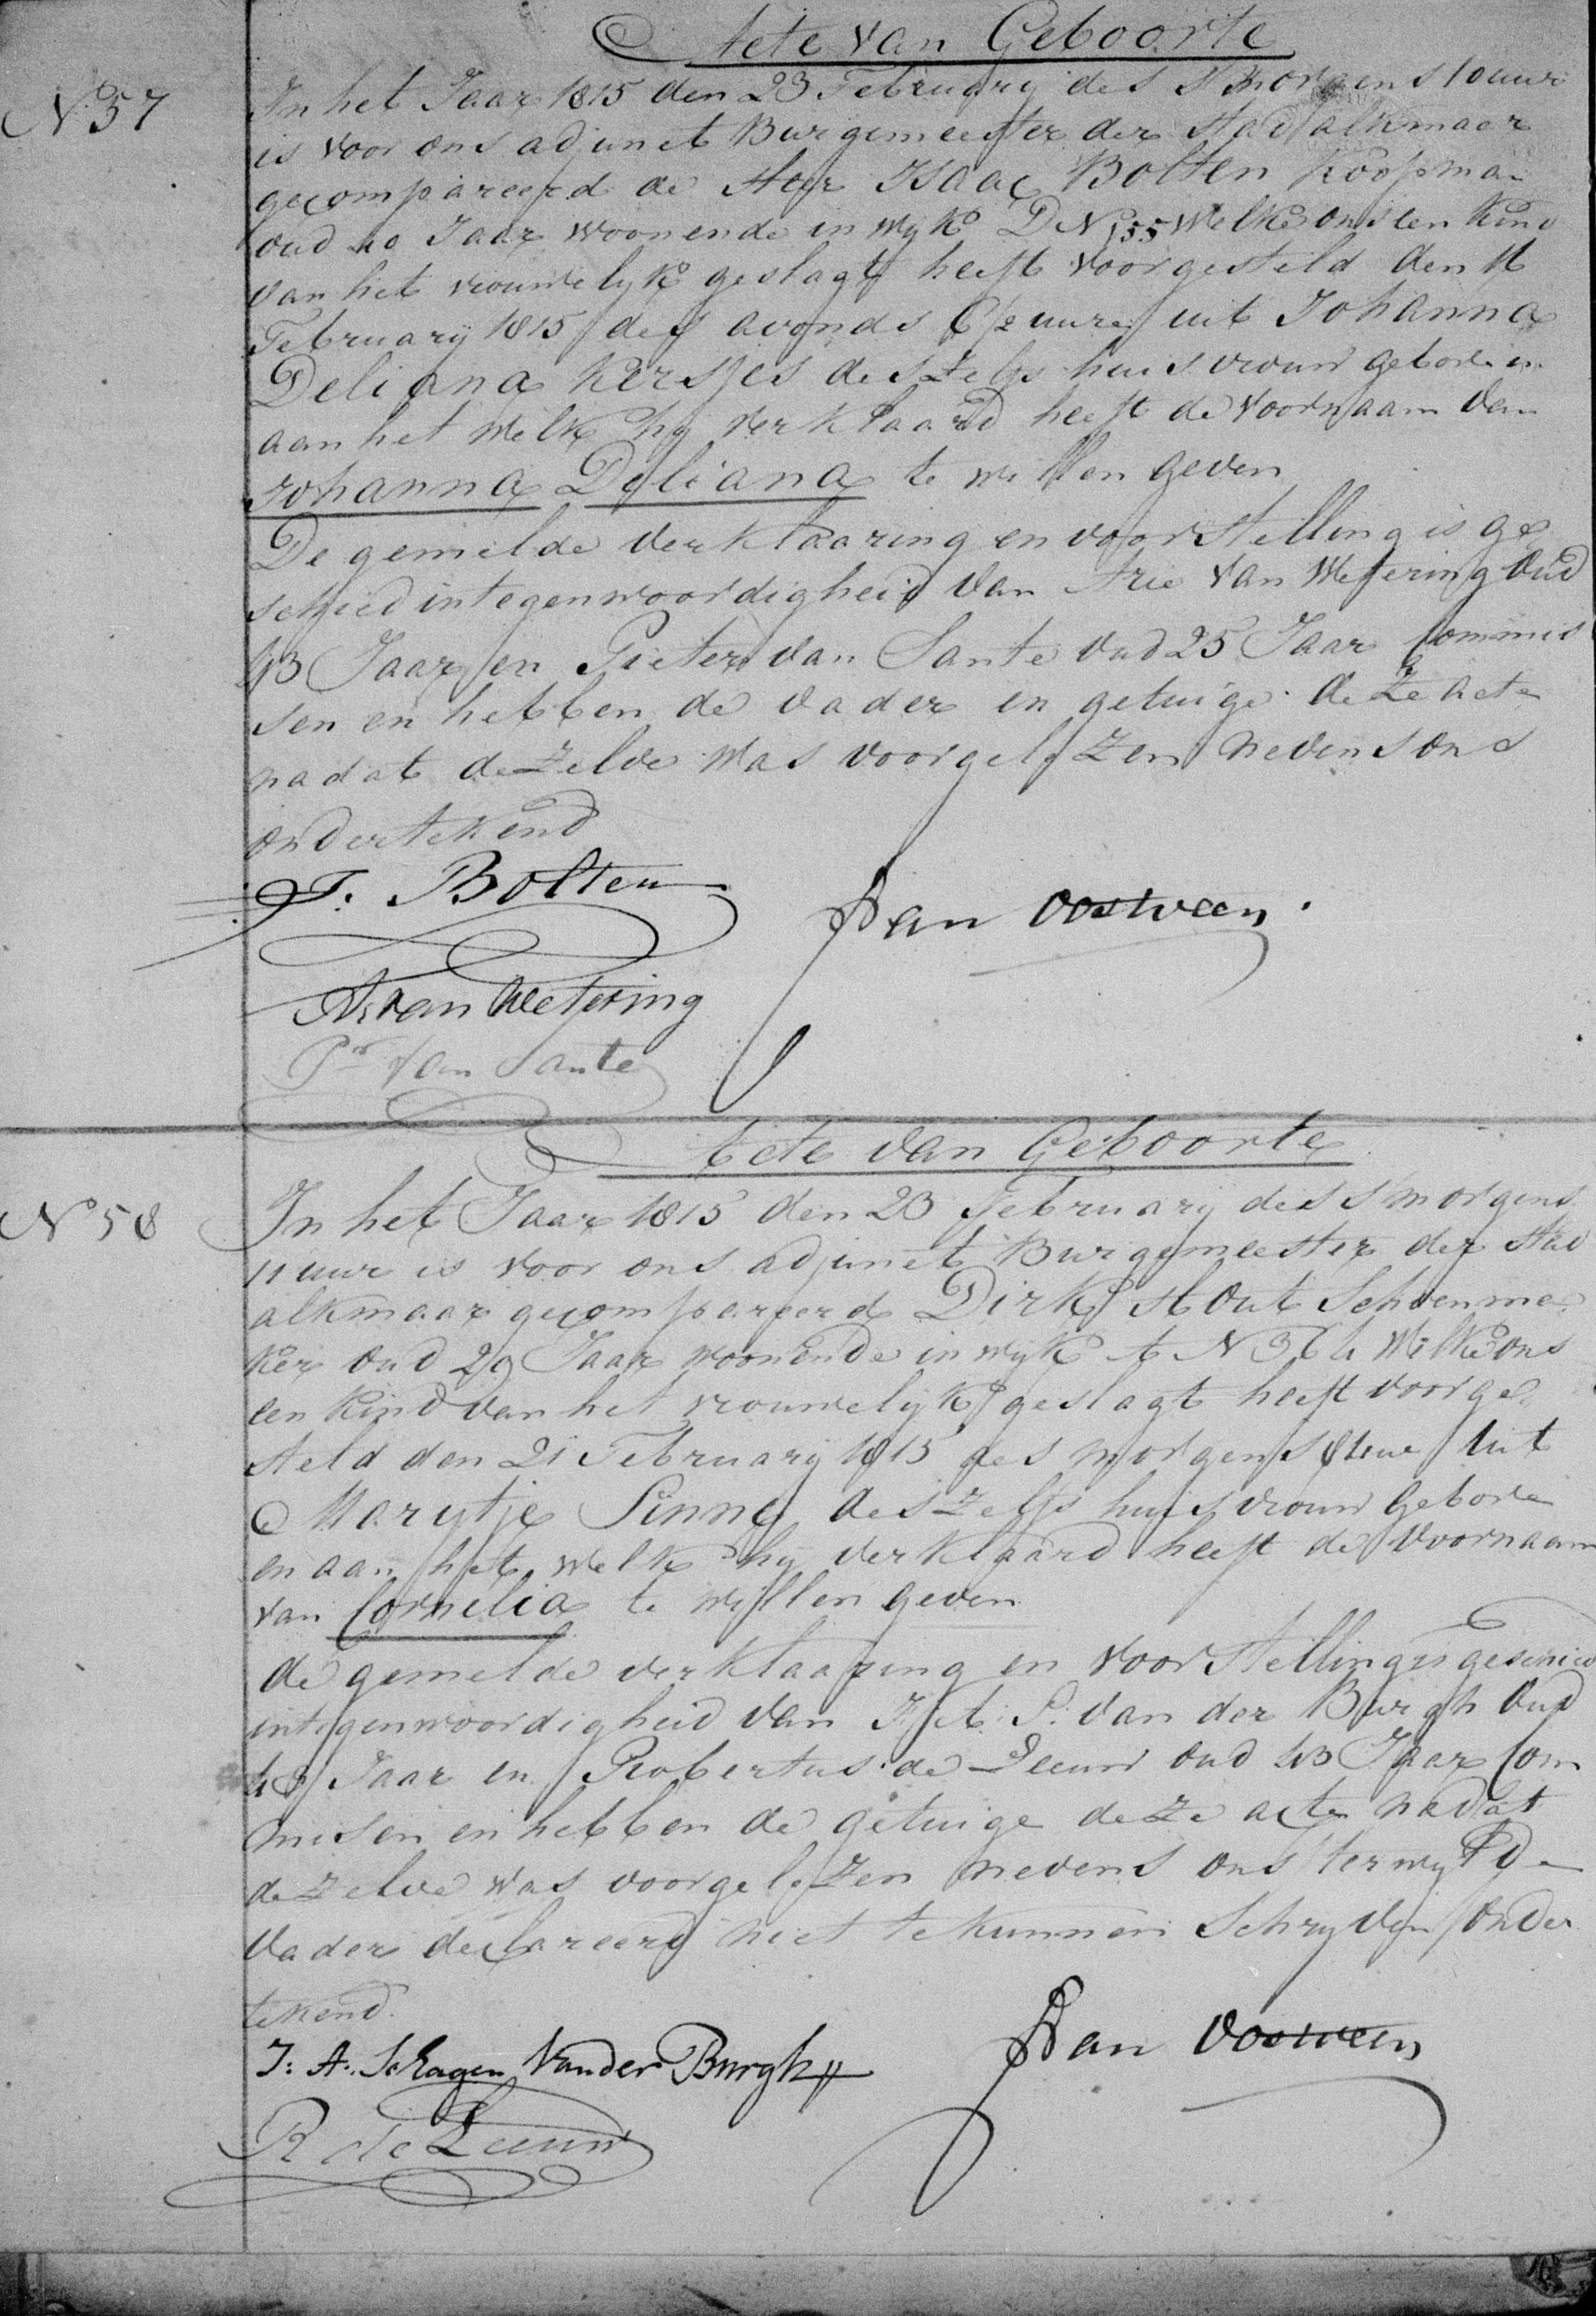 Acte van Geboorte
N 57
In het Jaar 1815 den 23 February des s morgens 10 uur
is voor ons adjunct Burgemeester der Stad alkmaar
gecompareerd de Heer Isaac Bolten Koopman
oud 40 Jaar woonende in wyk D N 155 Welke ons een Kind
van het vrouwelyk geslagt heeft voorgesteld den
February 1815 des avonds uure uit Johanna
Deliana Kersjes deszelfs huisvrouw geboren en
aan het welk hy verklaard heeft de voornaam van
Johanna Deliana te willen geven
De gemelde verklaaring en voorstelling is ge
schied in tegenwoordigheid van Arie van Wetering oud
43 Jaar en Pieter van Sante oud 25 Jaar Commis
sen en hebben de vader en getuige deze acte
nadat dezelve was voorgelezen nevens ons
ondertekend
I. Bolten Van Oostveen.
A. van Wetering
Pr van Sante
Acte van Geboorte
N 58
In het Jaar 1815 den 23 February des smorgens
11 uur is voor ons adjunct Burgemeester der Stad
alkmaar gecompareerd Dirk Stout Schoenma
ker oud 29 Jaar woonende in wyk A N Welke ons
een Kind van het vrouwelyk geslagt heeft voorge
steld den 21 February 1815 des morgens 8 uur uit
Marytje Sinne deszelfs huisvrouw Gebore
en aan het welk hy verklaard heeft de voornaam
van Cornelia te willen geven
de gemelde verklaaring en voorstelling is geschied
in tegenwoordigheid van J. A. S. van der Burgh oud
Jaar en Robertus de Leeuw oud 43 Jaar Com
misen en hebben de getuige deze acte nadat
dezelve was voorgelezen nevens ons terwyl de
vader declareerd niet te kunnen Schryven onder
tekend.
J: A: Schagen Van der Burgh Van Oostveen
R de Leeuw